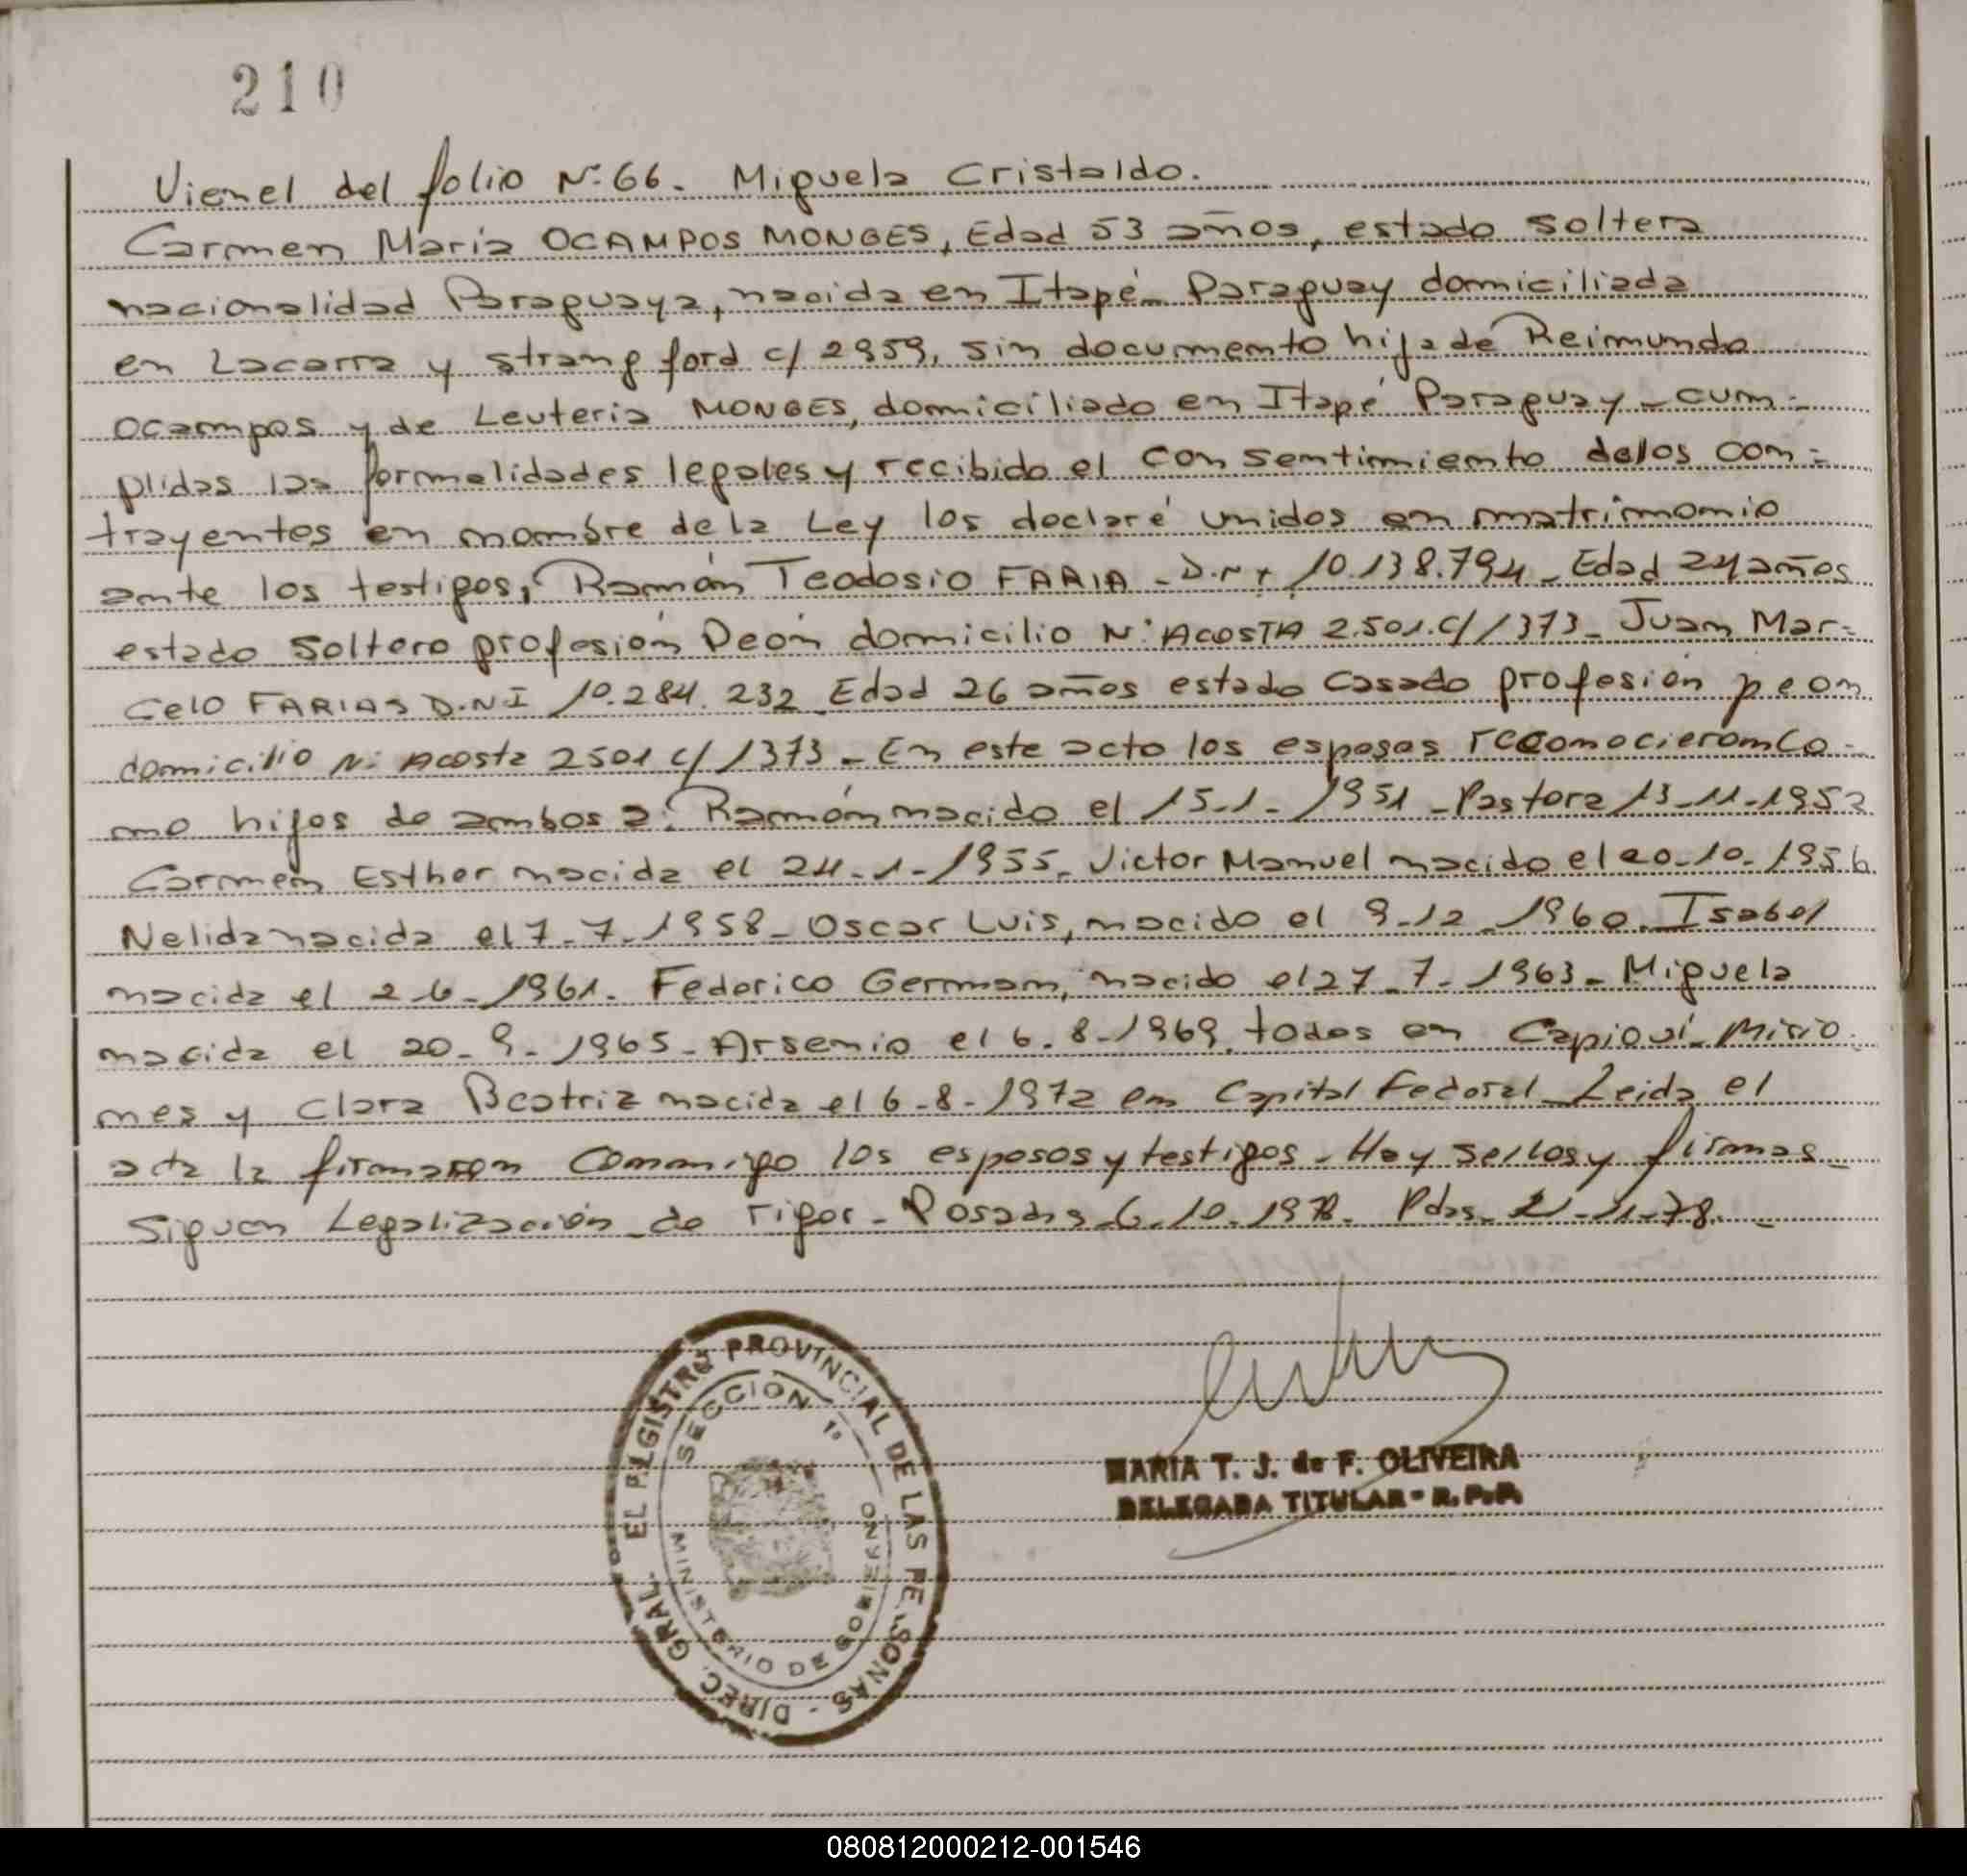 210
Vienel del folio Nº 66. Miguela Cristaldo.
Carmen Maria OCAMPOS MONGES, Edad 53 años, estado soltera
nacionalidad Paraguaya, nacida en Itapé - Paraguay domiciliada
en Lacarra y strangford c/ 2959, sin documento hija de Reimundo
Ocampos y de Leuteria MONGES, domiciliado en Itapé Paraguay - cum-
plidas las formalidades legales y recibido el consentimiento delos con-
trayentes en nombre de la Ley los declaré unidos en matrimonio
ante los testigos, Ramón Teodosio FARIA - D.N.I 10.138.794 - Edad 24 años
estado soltero profesión Peón domicilio N. ACOSTA 2.501. c/ 1373 - Juan Mar-
celo FARIAS D.N.I 10.284.232 Edad 26 años estado casado profesión peon
domicilio N. Acosta 2501 c/ 1373 - En este acto los esposos reconocieron co-
mo hijos de ambos a: Ramón nacido el 15-1-1951 - Pastora 13-11-1952
Carmen Esther nacida el 24-1-1955 - Victor Manuel nacido el 20-10-1956
Nelida nacida el 7-7-1958 - Oscar Luis, nacido el 9-12-1960. Isabel
nacida el 2-6-1961. Federico German, nacido el 27-7-1963 - Miguela
nacida el 20-9-1965 - Arsenio el 6-8-1969, todos en Capioví - Misio-
nes y Clara Beatriz nacida el 6-8-1972 en Capital Federal - Leida el
acta la firmaron conmigo los esposos y testigos - Hay sellos y firmas -
Siguen Legalización de rigor - Posadas 6-10-1978. Pdas. 21-11-78. -
DIREC. GRAL. EL REGISTRO PROVINCIAL DE LAS PERSONAS -
SECCION 1º
MINISTERIO DE GOBIERNO
MARIA T. J. de F. OLIVEIRA
DELEGADA TITULAR - R. P. P.
080812000212-001546